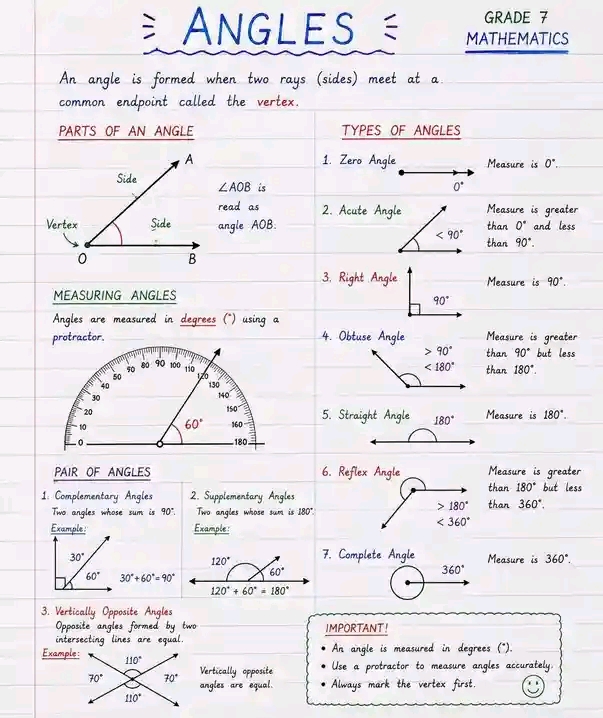 ANGLES
GRADE 7
MATHEMATICS
An angle is formed when two rays (sides) meet at a
common endpoint called the vertex.
PARTS OF AN ANGLE
A
Side
Vertex
Side
O
B
∠AOB is
read as
angle AOB.
MEASURING ANGLES
Angles are measured in degrees (°) using a
protractor.
0
10
20
30
40
50
60
70
80
90
100
110
120
130
140
150
160
180
60°
PAIR OF ANGLES
1. Complementary Angles
Two angles whose sum is 90°.
Example:
30°
60°
30°+60°=90°
2. Supplementary Angles
Two angles whose sum is 180°.
Example:
120°
60°
120° + 60° = 180°
3. Vertically Opposite Angles
Opposite angles formed by two
intersecting lines are equal.
Example:
110°
70°
70°
110°
Vertically opposite
angles are equal.
TYPES OF ANGLES
1. Zero Angle
0°
Measure is 0°.
2. Acute Angle
< 90°
Measure is greater
than 0° and less
than 90°.
3. Right Angle
90°
Measure is 90°.
4. Obtuse Angle
> 90°
< 180°
Measure is greater
than 90° but less
than 180°.
5. Straight Angle
180°
Measure is 180°.
6. Reflex Angle
> 180°
< 360°
Measure is greater
than 180° but less
than 360°.
7. Complete Angle
360°
Measure is 360°.
IMPORTANT!
• An angle is measured in degrees (°).
• Use a protractor to measure angles accurately.
• Always mark the vertex first.